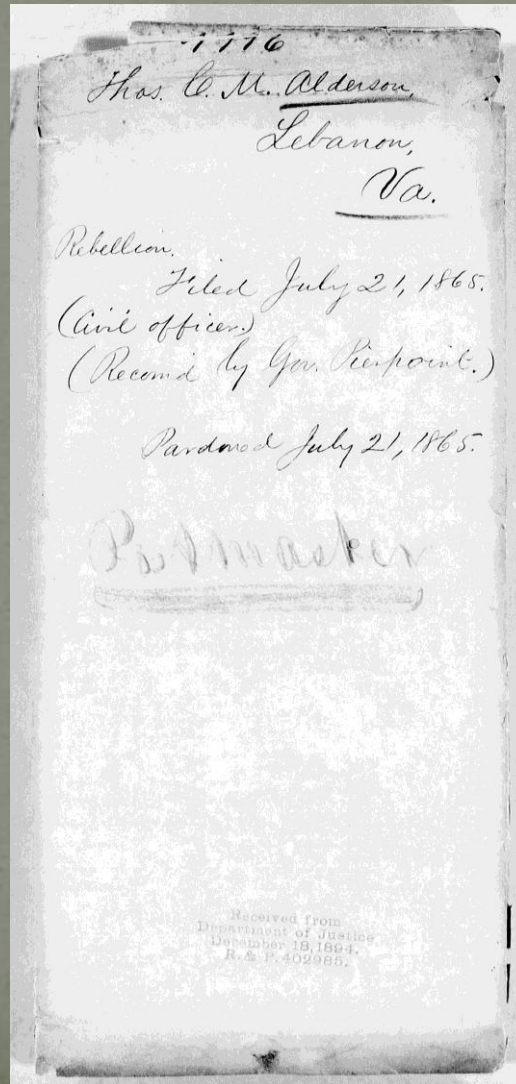 1116
Thos. C. M. Alderson,
Lebanon,
Va.
Rebellion.
Filed July 21, 1865.
(Civil officer.)
(Recom'd by Gov. Pierpoint.)
Pardoned July 21, 1865.
Postmaster
Received from
Department of Justice
December 18, 1894.
R. & P. 402985.